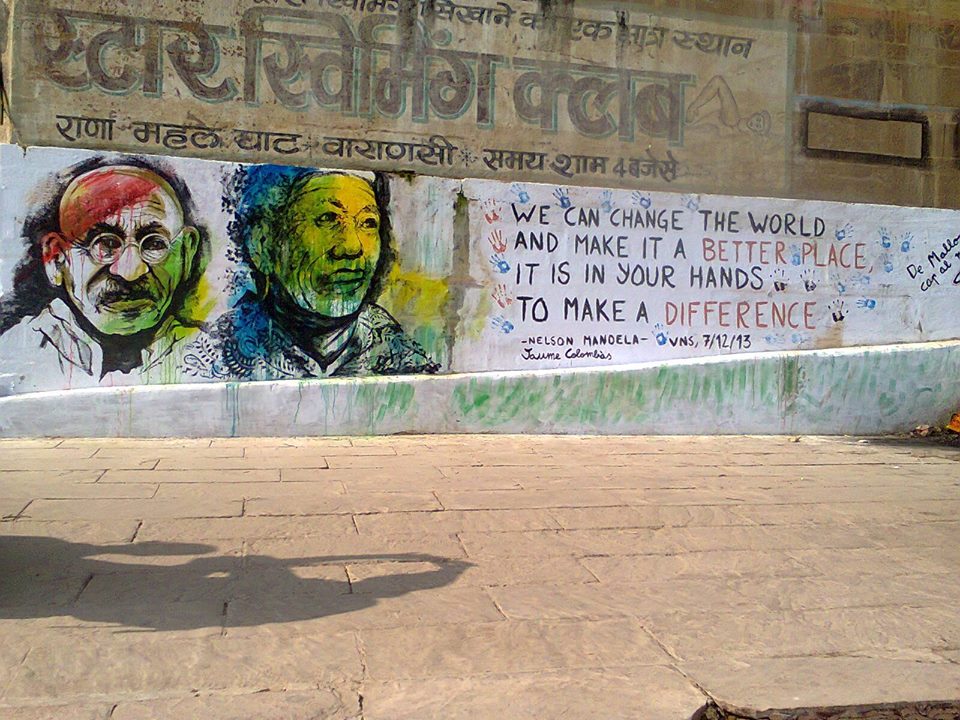 सिखाने का एक मात्र स्थान
स्टार स्विमिंग क्लब
राणा महल घाट वाराणसी समय शाम 4 बजे से
WE CAN CHANGE THE WORLD
AND MAKE IT A BETTER PLACE,
IT IS IN YOUR HANDS
TO MAKE A DIFFERENCE
-NELSON MANDELA- VNS, 7/12/13
Jaume Colombàs
De Mallor
cap al